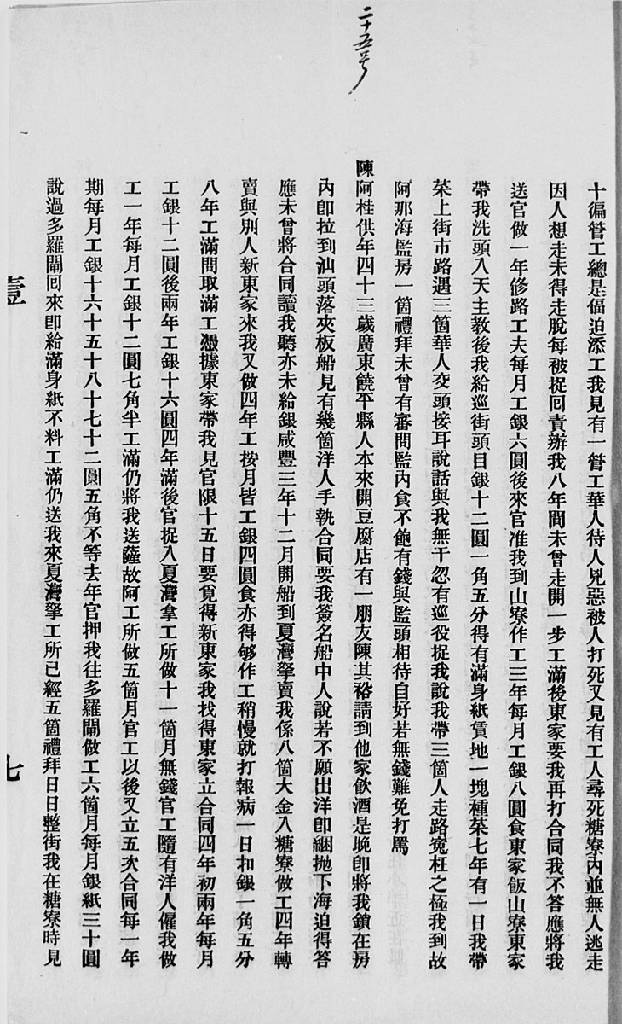 二十五号
十徧管工總是偪迫添工我見有一管工華人待人兇惡被人打死又見有工人尋死糖寮內並無人逃走
因人想走未得走脫每被捉囘責辦我八年間未曾走開一步工滿後東家要我再打合同我不答應將我
送官做一年修路工夫每月工銀六圓後來官准我到山寮作工三年每月工銀八圓食東家飯山寮東家
帶我洗頭入天主教後我給巡街頭目銀十二圓一角五分得有滿身紙賃地一塊種菜七年有一日我帶
菜上街市路遇三箇華人交頭接耳說話與我無干忽有巡役捉我說我帶三箇人走路冤枉之極我到故
阿那海監房一箇禮拜未曾有審問監內食不飽有錢與監頭相待自好若無錢難免打罵
陳阿桂供年四十三歲廣東饒平縣人本來開豆腐店有一朋友陳其裕請到他家飲酒是晚卽將我鎖在房
內卽拉到汕頭落夾板船見有幾箇洋人手執合同要我簽名船中人說若不願出洋卽綑拋下海迫得答
應未曾將合同讀我聽亦未給銀咸豐三年十二月開船到夏灣拏賣我係八箇大金入糖寮做工四年轉
賣與別人新東家來我又做四年工按月皆工銀四圓食亦得够作工稍慢就打報病一日扣銀一角五分
八年工滿問取滿工憑據東家帶我見官限十五日要覓得新東家我找得東家立合同四年初兩年每月
工銀十二圓後兩年工銀十六圓四年滿後官捉入夏灣拿工所做十一箇月無錢官工隨有洋人僱我做
工一年每月工銀十二圓七角半工滿仍將我送薩故阿工所做五箇月官工以後又立五次合同每一年
期每月工銀十六十五十八十七十二圓五角不等去年官押我往多羅閘做工六箇月每月銀紙三十圓
說過多羅閘囘來卽給滿身紙不料工滿仍送我來夏灣拏工所已經五箇禮拜日日整街我在糖寮時見
壹
七